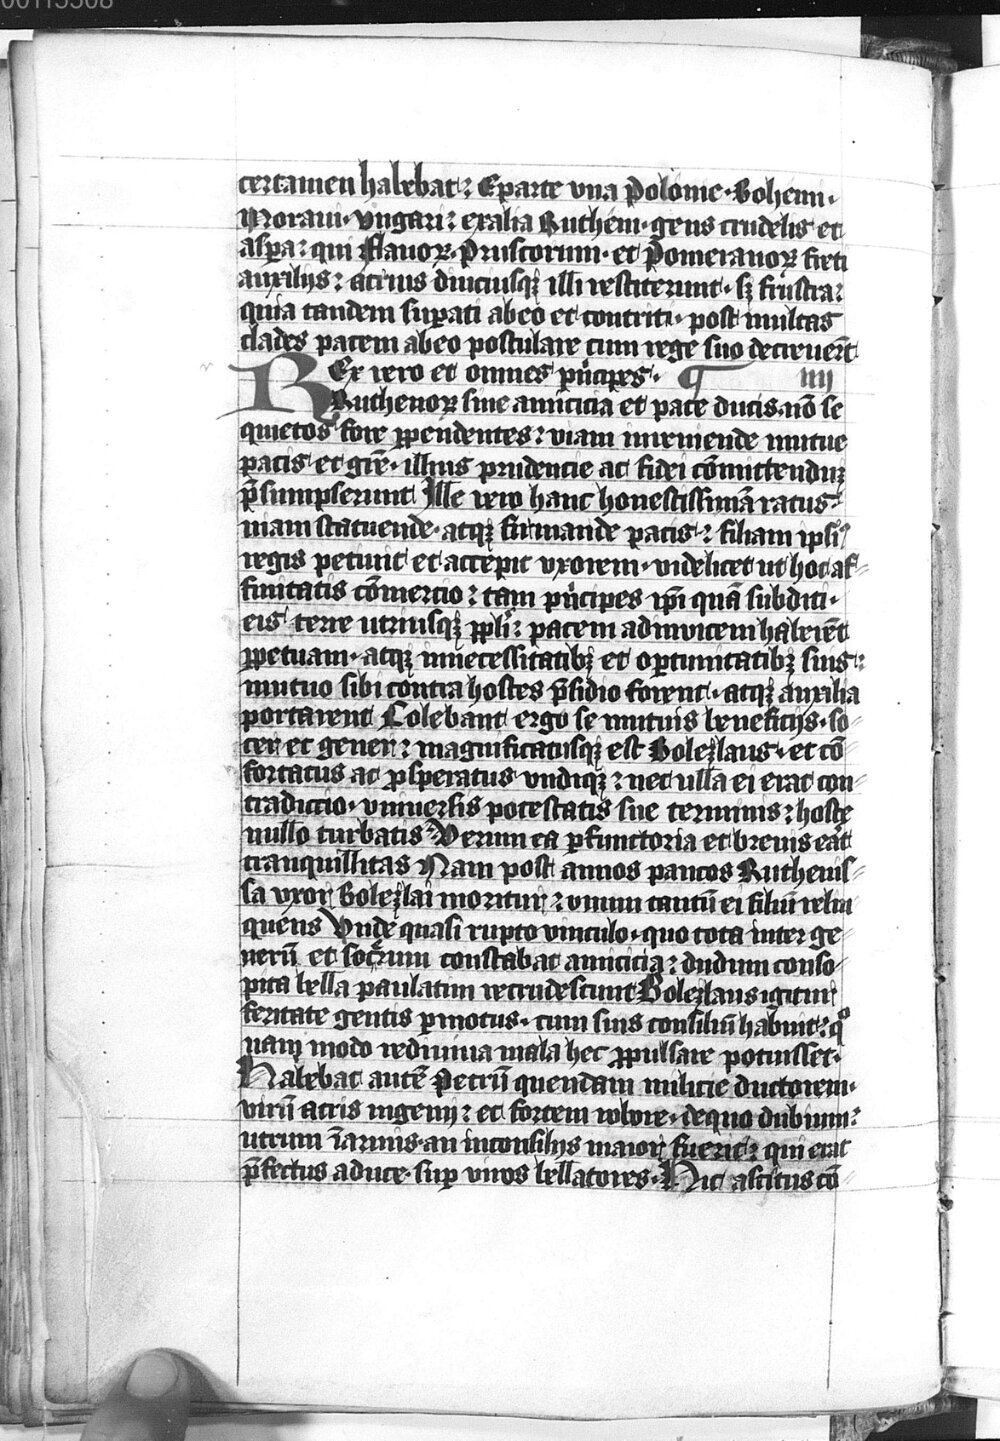 00115308
certamen habebat: Ex parte vna Polonie· Bohemi·
Moraui· Vngari: ex alia Rutheni· gens crudelis et
aspa: qui Flauoꝝ· Pruscorum· et Pomeranoꝝ freti
auxilijs: acrius diuciusqꝫ illi restiterunt· sꝫ frustra:
quia tandem supati ab eo et contriti· post multas
clades pacem ab eo postulare cum rege suo decreuerũt
REx vero et omnes pͥncipes· ¶ iiij
Ruthenoꝝ sine amicicia et pace ducis nõ se
quietos fore ꝑpendentes: viam inueniende mutue
pacis et grẽ· illius prudencie ac fidei cõmittendũ
p̃sumpserunt Ille vero hanc honestissimã ratus
uiam statuende· atqꝫ firmande pacis: filiam ipsiꝰ
regis petiuit et accepit vxorem· videlicet ut hoc af⸗
finitatis cõmercio: tam pͥncipes ip̃i quã subditi
eis terre utriusqꝫ ppl̃i: pacem adinvicem haberẽt
ꝑpetuam· atqꝫ in necessitatibꝫ et oportunitatibꝫ suis:
mutuo sibi contra hostes p̃sidio forent· atqꝫ auxilia
portarent Colebant ergo se mutuis beneficijs· so⸗
cer et gener: magnificatusqꝫ est Bolezlaus· et cõ
fortatus ac ꝓsperatus vndiqꝫ: nec ulla ei erat con⸗
tradictio· vniuersis potestatis sue terminis: hoste
nullo turbatis Verum ea ꝑfunctoria et breuis erat
tranquillitas Nam post annos paucos Ruthenis⸗
sa vxor Bolezlai moritur: vnum tantũ ei filiũ relin
quens Vnde quasi rupto vinculo· quo tota inter ge⸗
nerũ et socrum constabat amicicia: dudum conso⸗
pita bella paulatim recrudescunt Bolezlaus igitur
feritate gentis ꝑmotus· cum suis consiliũ habuit: qͦ
nam modo rediuiua mala hec ꝓpulsare potuisset·
Habebat autẽ Petrũ quendam milicie ductorem·
virũ acris ingenij: et fortem robore· de quo dubium:
utrum ĩ armis· an in consilijs maior fuerit: qui erat
p̃fectus a duce· sup viros bellatores· Hic ascitus cõ⸗